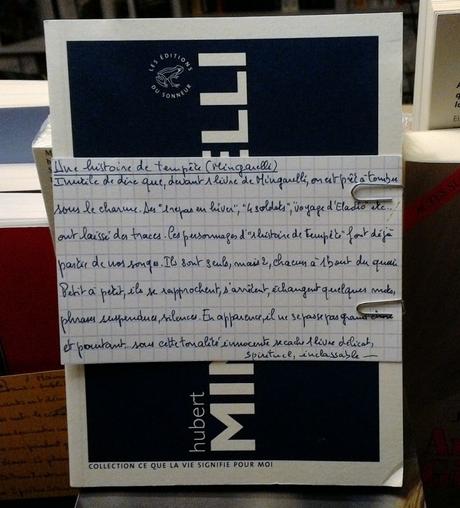 LES ÉDITIONS
DU SONNEUR
ELLI
Une histoire de tempête (Mingarelli)
Inutile de dire que, devant 1 livre de Mingarelli, on est prêt à tomber
sous le charme. Ses "1 repas en hiver", "4 soldats", "voyage d'Eladio" etc..
ont laissé des traces. Les personnages d'"1 histoire de tempête" font déjà
partie de nos songes. Ils sont seuls, mais 2, chacun à 1 bout du quai.
Petit à petit, ils se rapprochent, s'arrêtent, échangent quelques mots,
phrases suspendues, silences. En apparence, il ne se passe pas grand chose
et pourtant sous cette tonalité innocente se cache 1 livre délicat,
spirituel, inclassable —
hubert
MIN
COLLECTION CE QUE LA VIE SIGNIFIE POUR MOI